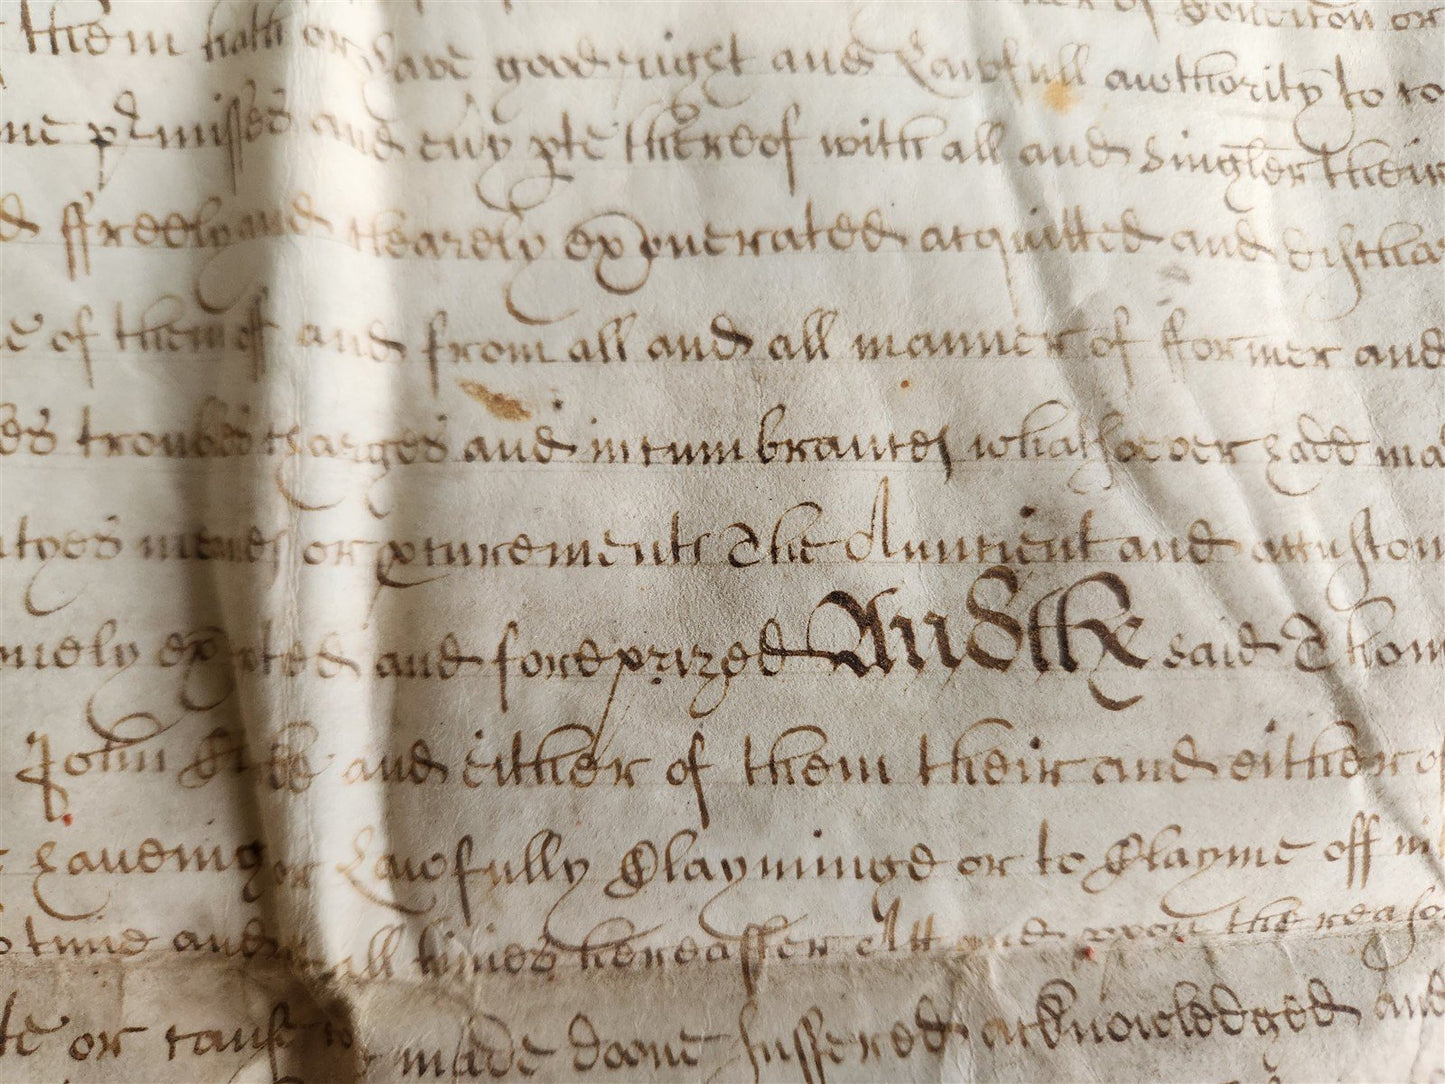 them hath or have good right and Lawfull awthority to co
p'misses and ev'y p'te thereof with all and Singler their
ffreely and Clearely exonerated acquitted and discha
of them off and from all and all manner of fformer and
troubles Charges and incumbrances whatsoever hadd ma
or procurements The Auncient and accustom
excepted and foreprized And the said Thom
John and either of them their and either of
haueing or Lawfully Clayminge or to Clayme off in
tyme and all times hereafter Att and vpon the reaso
or cause to made doone suffered acknowledged and